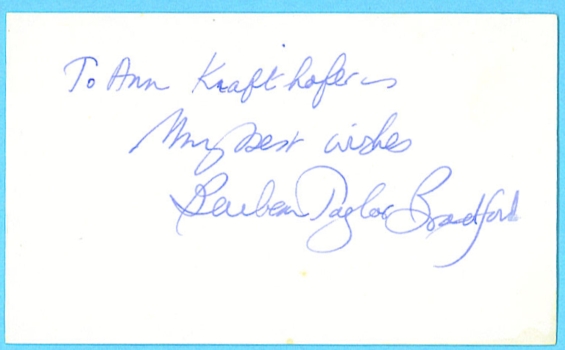 To Ann Krafthofer –
My best wishes
Barbara Taylor Bradford